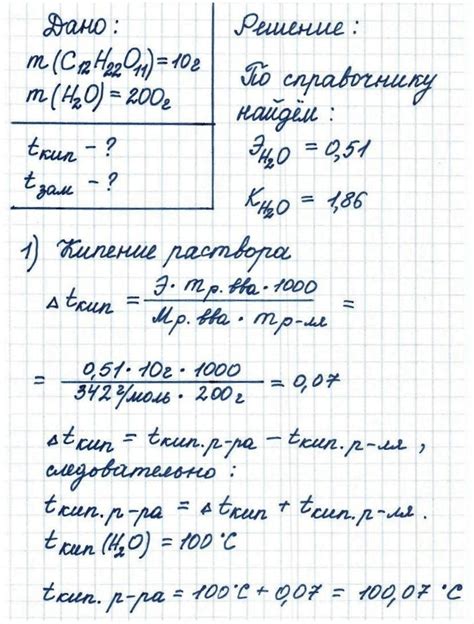 Дано:
m(C₁₂H₂₂O₁₁)=10г
m(H₂O)=200г
tкип - ?
tзам - ?
Решение:
По справочнику
найдём:
ЭH₂O = 0,51
KH₂O = 1,86
1) Кипение раствора
Δtкип = Э · mр.вва · 1000 / Mр.вва · mр-ля =
= 0,51 · 10г · 1000 / 342 г/моль · 200г = 0,07
Δtкип = tкип.р-ра - tкип.р-ля,
следовательно:
tкип.р-ра = Δtкип + tкип.р-ля.
tкип(H₂O) = 100°C
tкип.р-ра = 100°C + 0,07 = 100,07°C